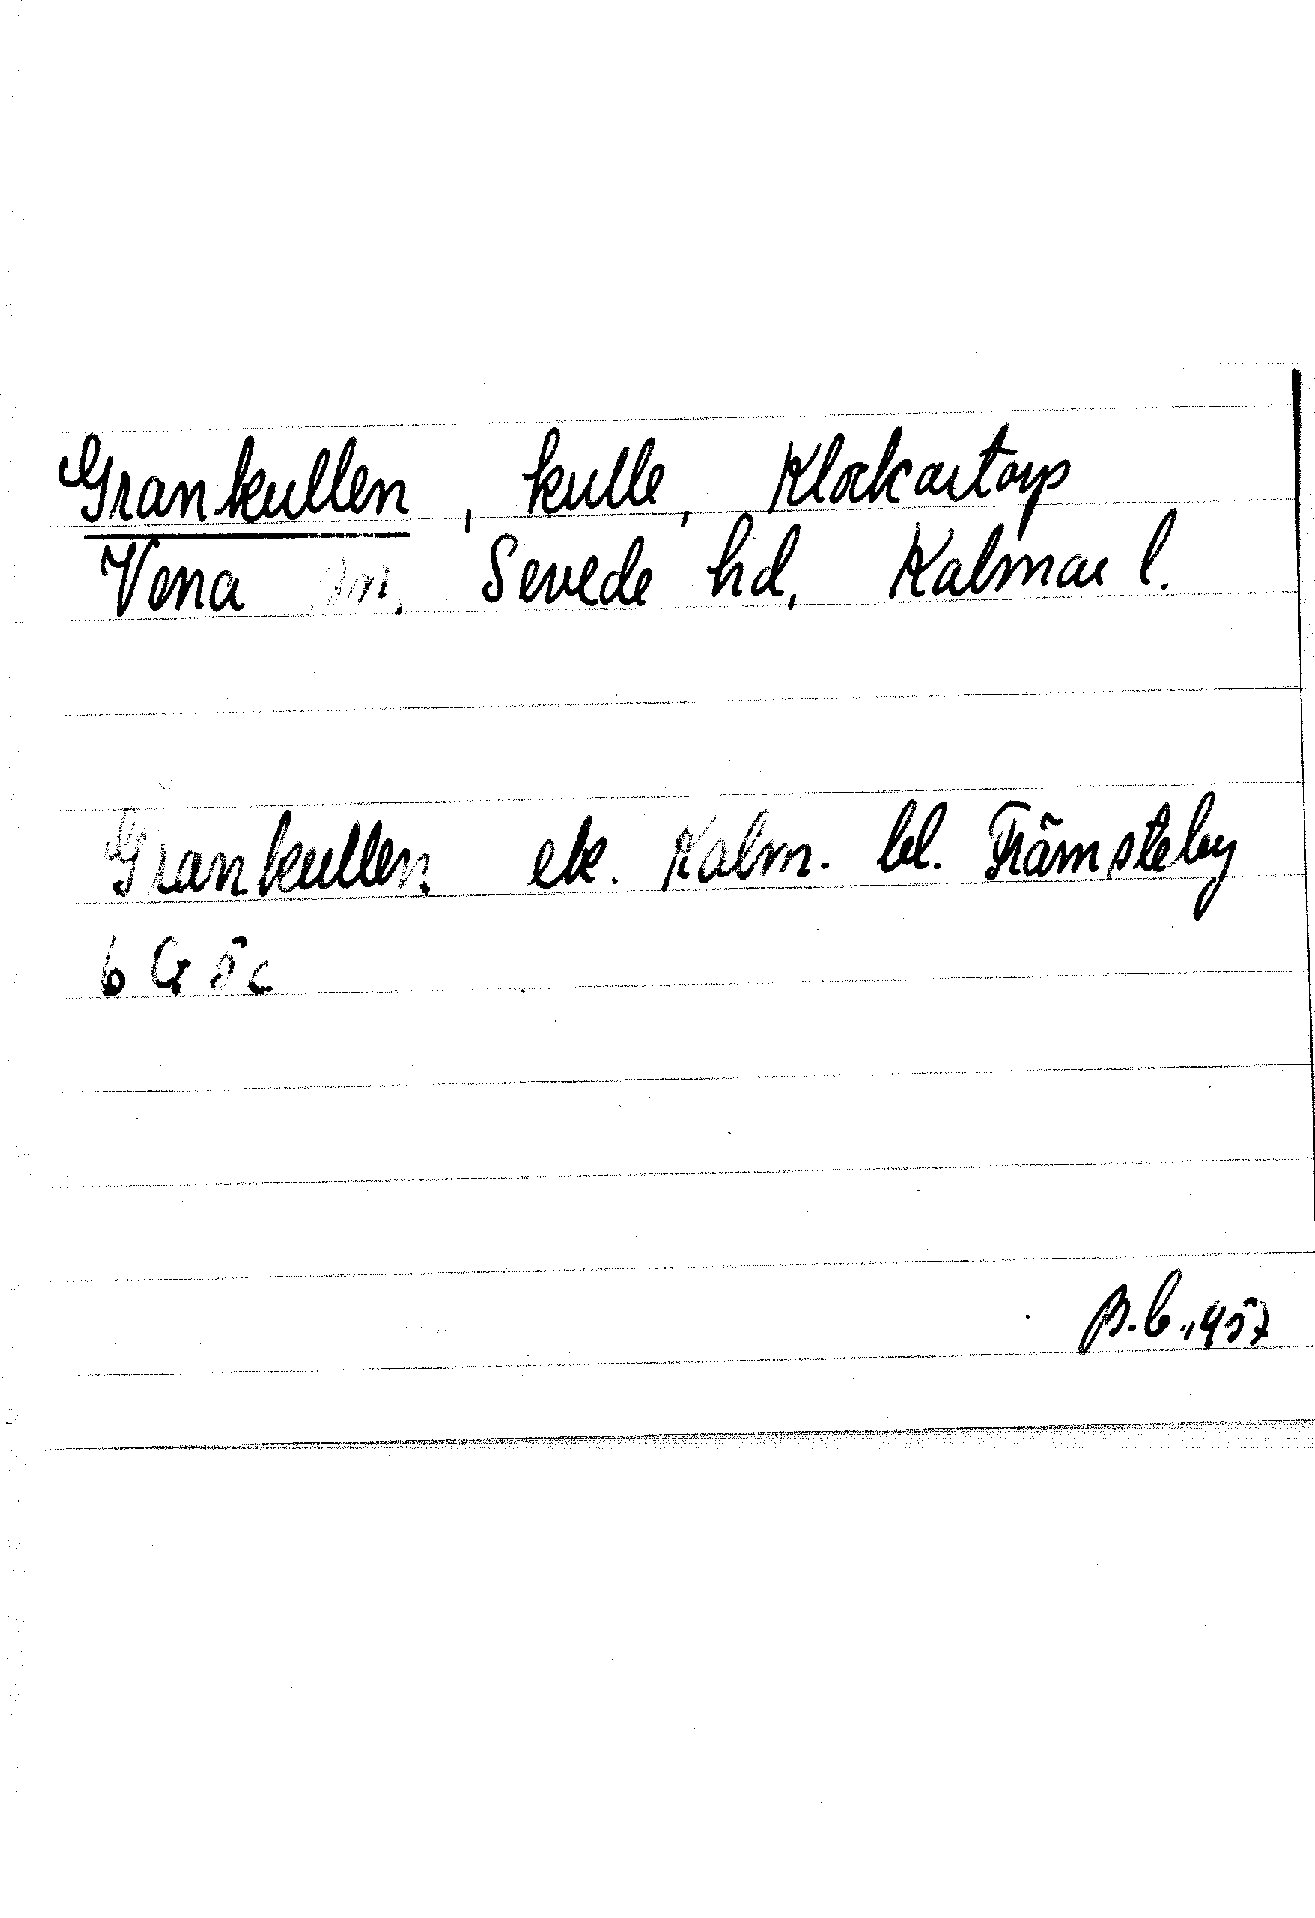 Grankullen, kulle, Klockartorp
Vena sn, Sevede hd, Kalmar l.
Grankullen ek. Kalm. bl. Främsteby
6 G 5c
B.C. 1957